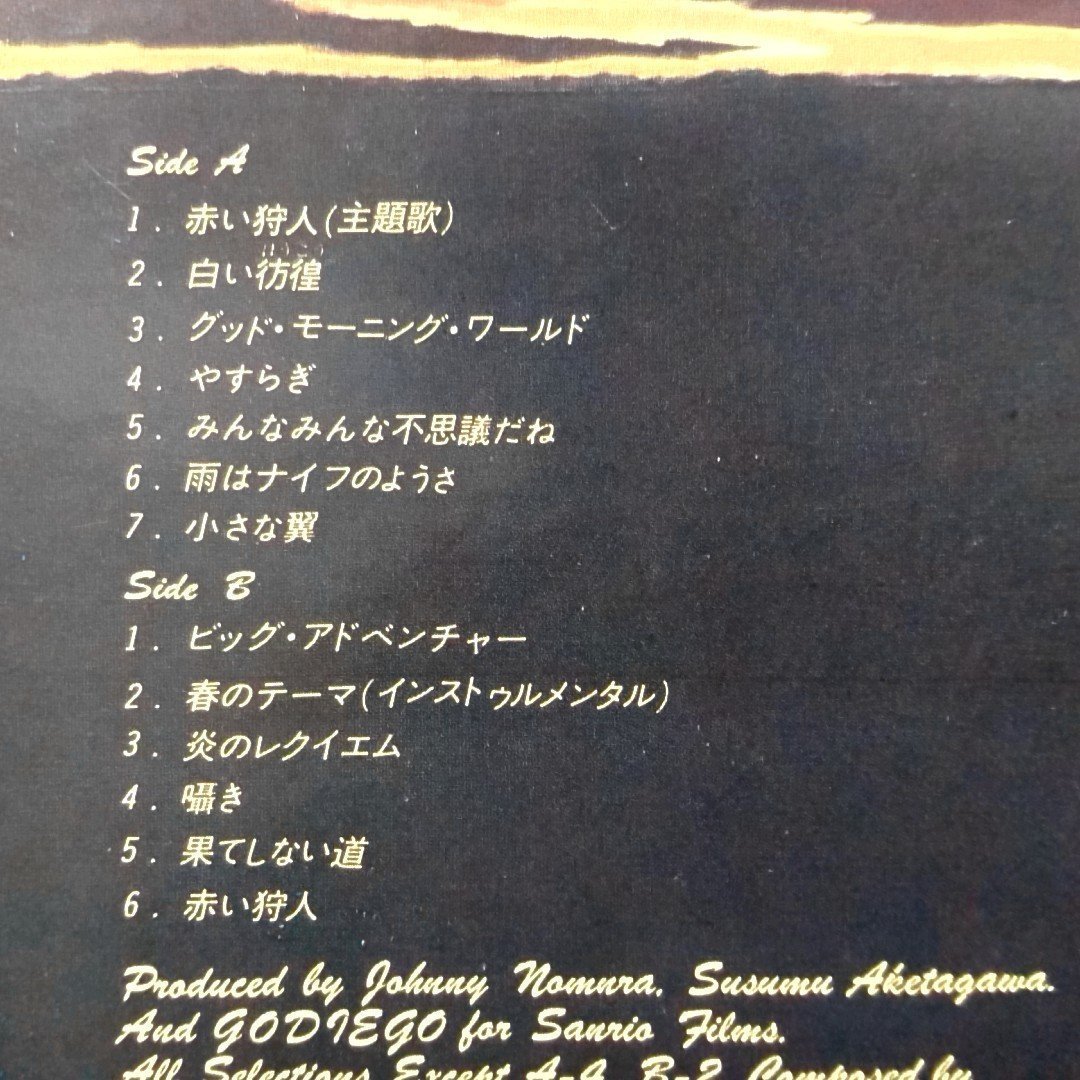 Side A
1. 赤い狩人(主題歌)
2. 白い彷徨
3. グッド・モーニング・ワールド
4. やすらぎ
5. みんなみんな不思議だね
6. 雨はナイフのようさ
7. 小さな翼
Side B
1. ビッグ・アドベンチャー
2. 春のテーマ(インストゥルメンタル)
3. 炎のレクイエム
4. 囁き
5. 果てしない道
6. 赤い狩人
Produced by Johnny Nomura, Susumu Aketagawa.
And GODIEGO for Sanrio Films.
All Selections Except A-4, B-2, Composed by